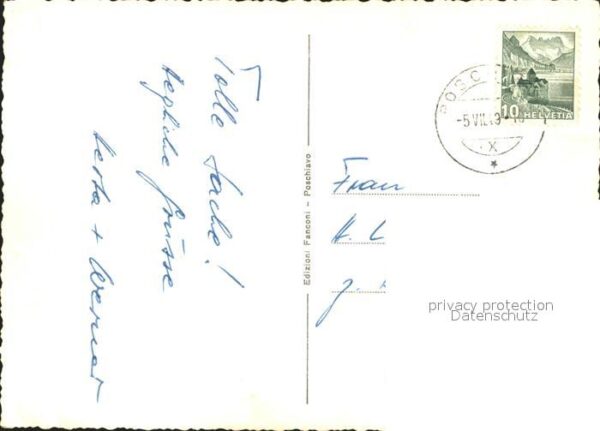 Tolle Sache!
Herzliche Grüsse
Herta + Werner
Edizioni Fanconi - Poschiavo
10
HELVETIA
POSC
-5.VII.49
X
Frau
H. L
privacy protection
Datenschutz